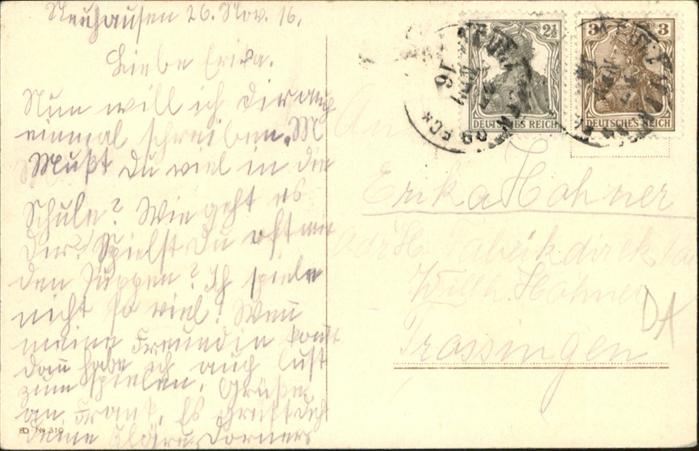 Neuhausen 26. Nov. 16.
Liebe Erika.
Nun will ich dir auch
einmal schreiben. M
Mußt Du viel in die
Schule? Wie geht es
Dir? Spielst Du oft mit
den Puppen? Ich spiele
nicht so viel! Wenn
meine Freundin kommt
dann habe ich auch Lust
zum spielen. Grüße
an Franz. Es grüßt dich
deine Dorner
DEUTSCHES REICH
DEUTSCHES REICH
An
Erika Hohner
Adr. H. Fabrikdirektor
Wilh. Hohner
Trossingen